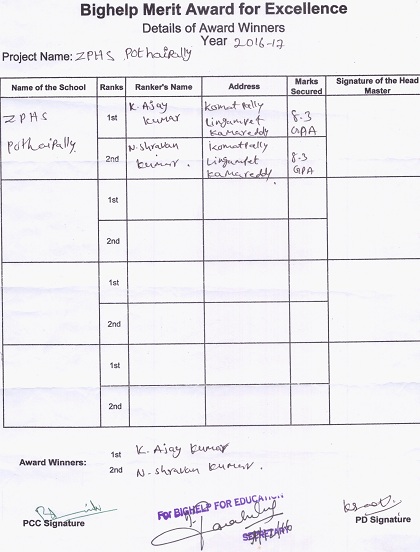 Bighelp Merit Award for Excellence
Details of Award Winners
Year 2016-17
Project Name: ZPHS Pothaipally
Name of the School Ranks Ranker's Name Address Marks Secured Signature of the Head Master
ZPHS Pothaipally 1st K. Ajay Kumar Komatpally Lingampet Kamareddy 8.3 GPA
2nd N. Shravan Kumar. Komatpally Lingampet Kamareddy. 8.3 GPA
1st
2nd
1st
2nd
1st
2nd
Award Winners:
1st K. Ajay Kumar
2nd N. Shravan Kumar.
For BIGHELP FOR EDUCATION
SECRETARY
PCC Signature
PD Signature